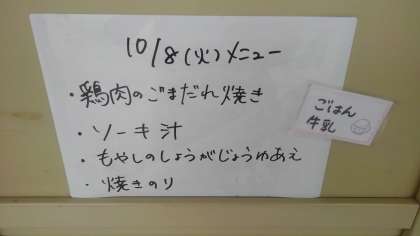 10/8(火)メニュー
・鶏肉のごまだれ焼き
・ソーキ汁
・もやしのしょうがじょうゆあえ
・焼きのり
ごはん
牛乳